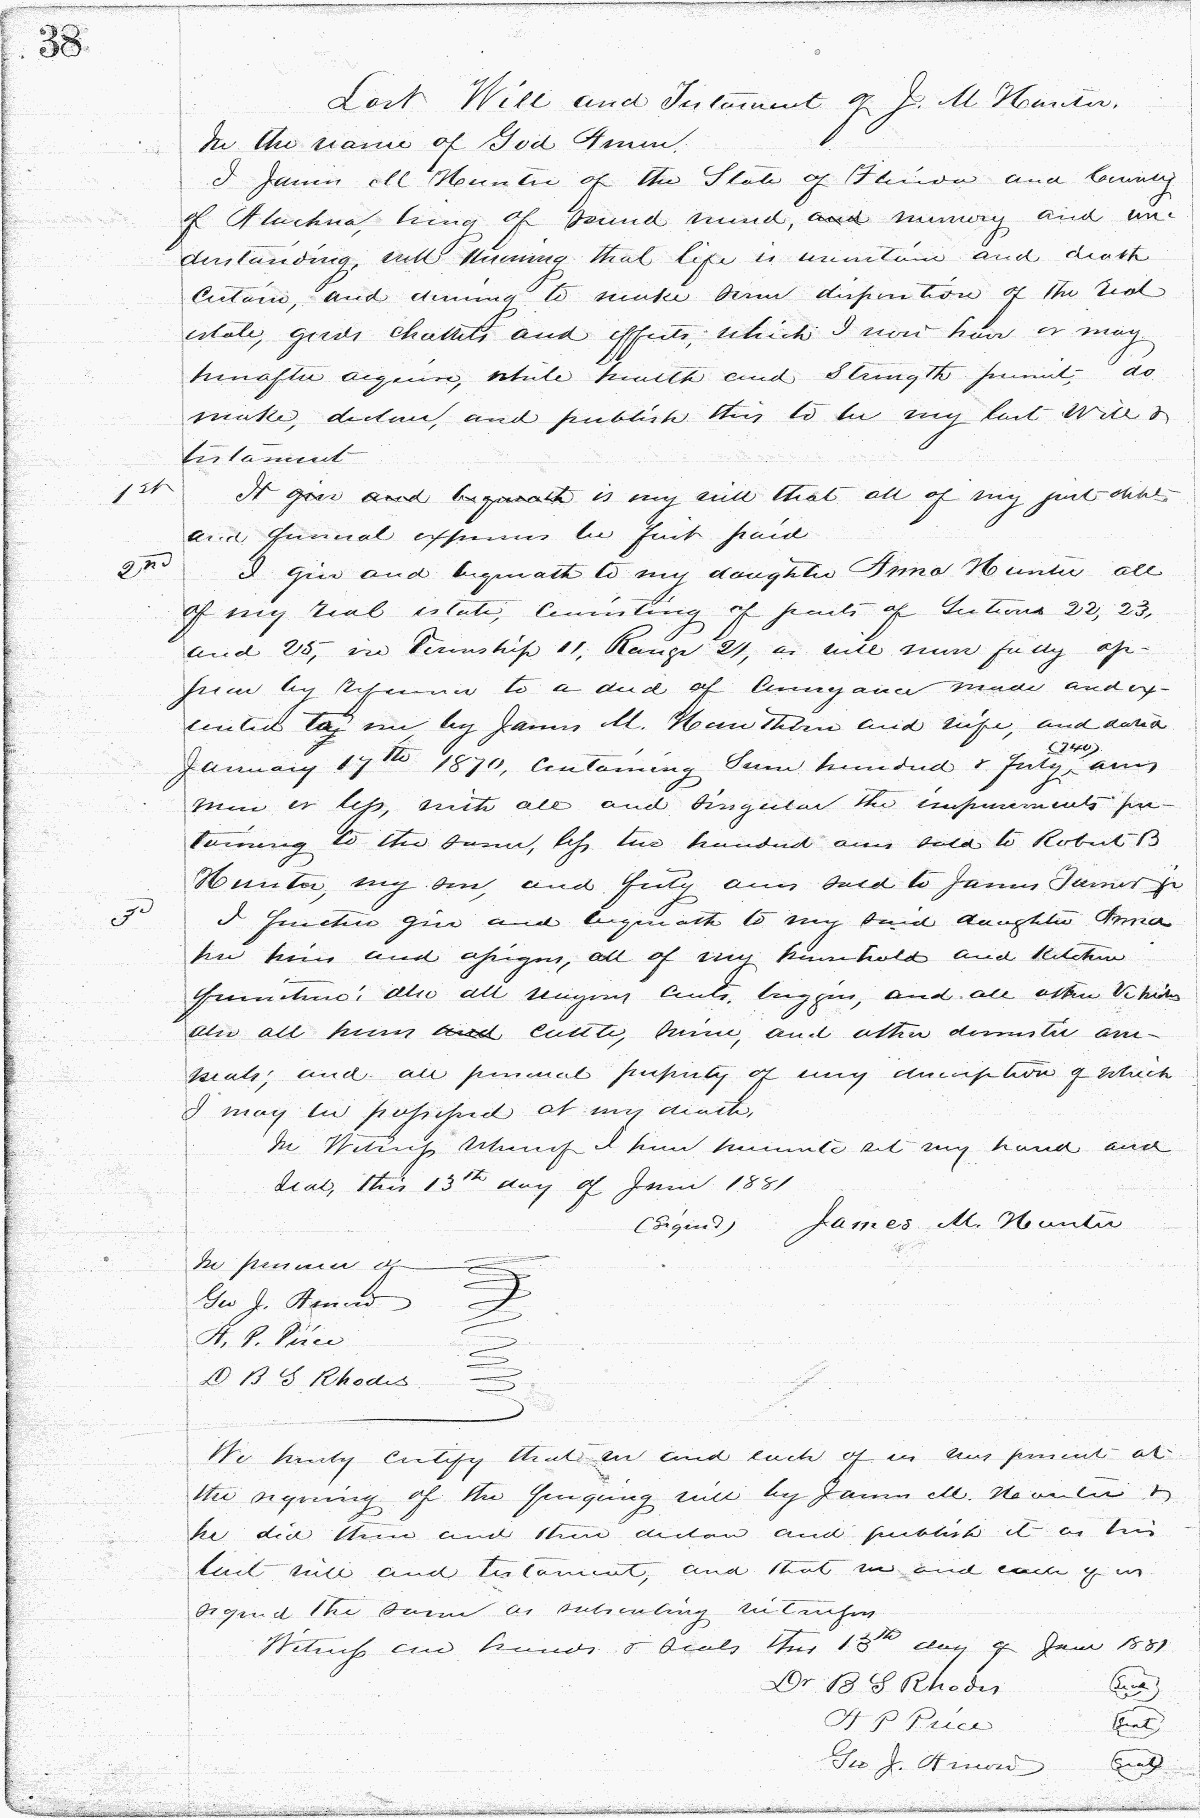 38
Last Will and Testament of J. M Hunter.
In the name of God Amen.
I James M Hunter of the State of Florida and County
of Alachua, being of sound mind, and memory and un-
derstanding, well knowing that life is uncertain and death
certain, and desiring to make some disposition of the real
estate, goods chattels and effects, which I now have or may
hereafter acquire, while health and strength permit, do
make, declare, and publish this to be my last Will &
testament
1st It give and bequeath is my will that all of my just debts
and funeral expenses be first paid
2nd I give and bequeath to my daughter Anna Hunter all
of my real estate, consisting of parts of Sections 22, 23,
and 25, in Township 11, Range 21, as will more fully ap-
pear by reference to a deed of conveyance made and ex-
ecuted to me by James M. Hawthorn and wife, and dated
January 17th 1870, containing Seven hundred & forty (740) acres
more or less, with all and singular the improvements per-
taining to the same, less two hundred acres sold to Robert B
Hunter, my son, and forty acres sold to James Turner jr
3d I further give and bequeath to my said daughter Anna
her heirs and assigns, all of my household and kitchen
furniture; also all wagons carts, buggies, and all other Vehicles
also all horses and cattle, swine, and other domestic ani-
mals; and all personal property of every description of which
I may be possessed at my death.
In Witness whereof I have hereunto set my hand and
seal, this 13th day of June 1881
(Signed) James M. Hunter
In presence of
Geo J. Arnow
A. P. Price
D B S Rhodes
We hereby certify that we and each of us was present at
the signing of the foregoing will by James M. Hunter &
he did then and there declare and publish it as his
last will and testament, and that we and each of us
signed the same as subscribing witnesses
Witness our hands & seals this 13th day of June 1881
Dr B S Rhodes Seal
A P Price Seal
Geo J. Arnow Seal